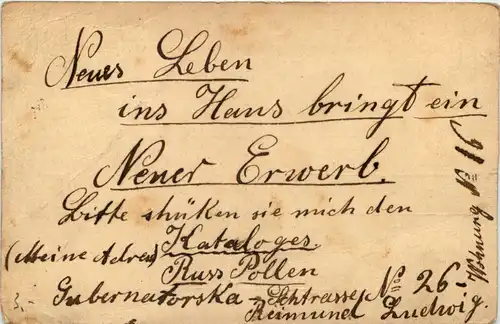 Neues Leben
ins Haus bringt ein
Neuer Erwerb.
Bitte shüken sie mich den
Kataloges.
(Meine Adres)
Russ Pollen
Gubernatorska - Schtrasse No 26
Reimund Ludwig.
Wohnung No 16
3.-